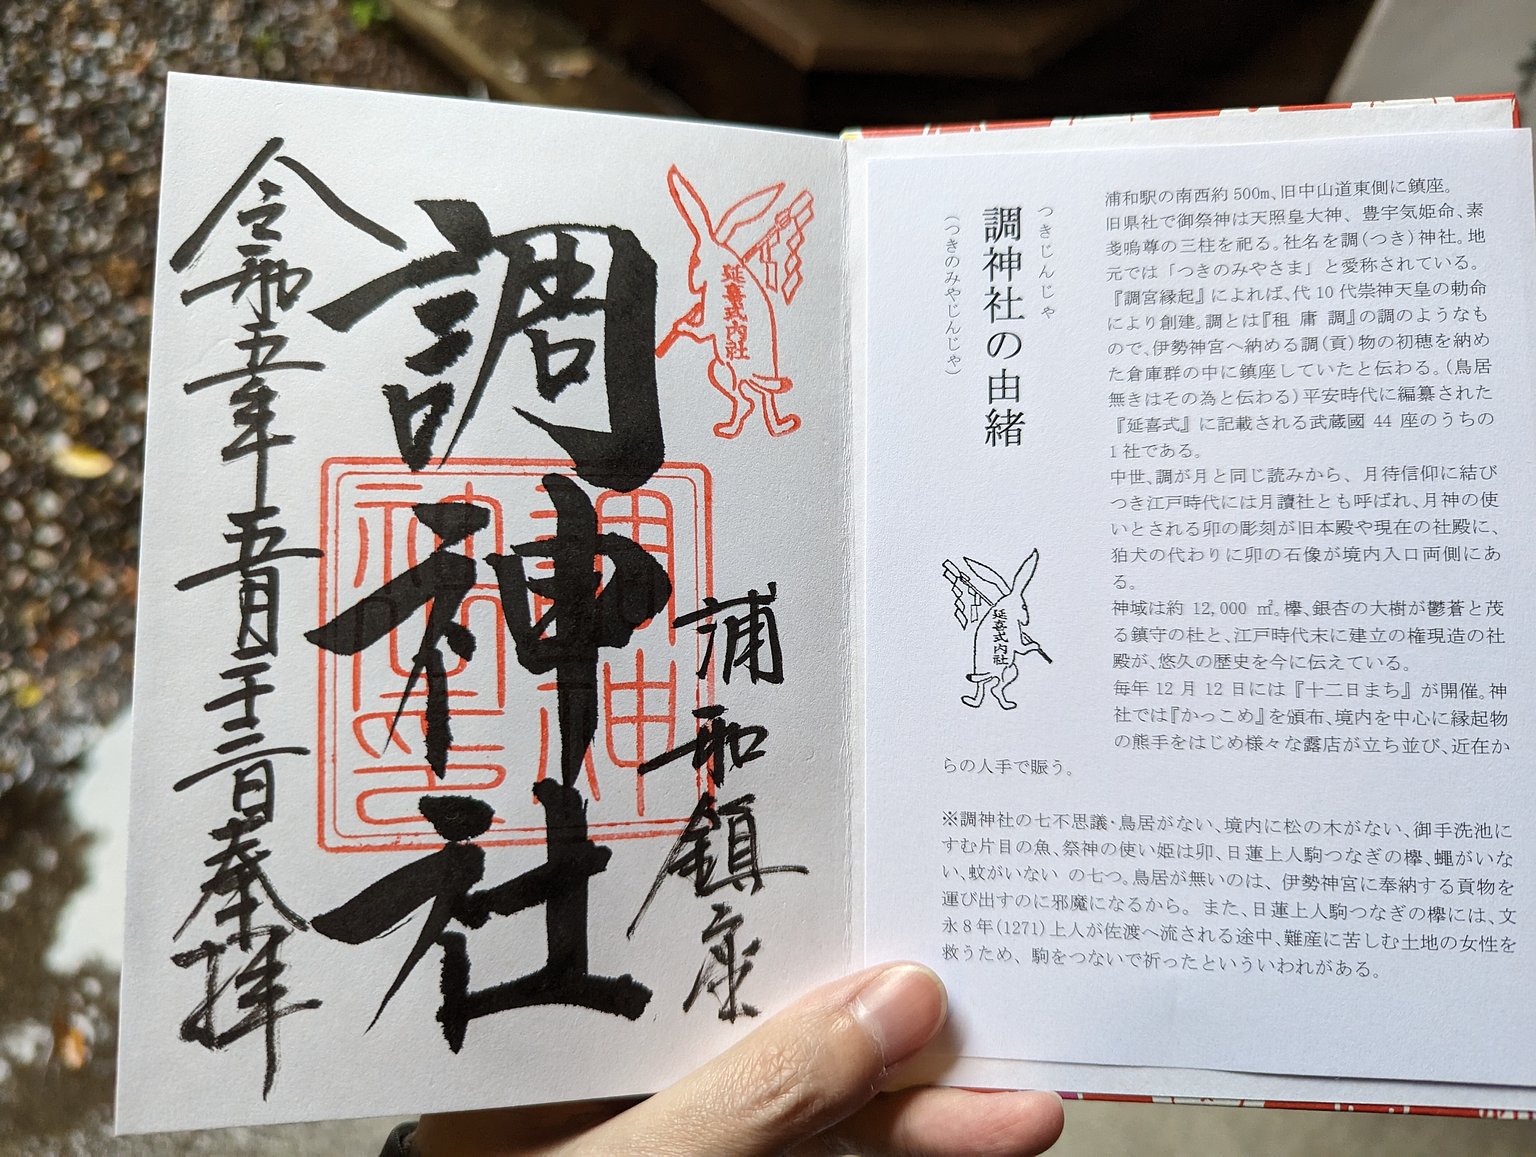 延喜式内社
浦和鎮座
調神社
令和五年五月二十三日奉拝
つきじんじゃ
調神社の由緒
(つきのみやじんじゃ)
延喜式内社
浦和駅の南西約500m、旧中山道東側に鎮座。
旧県社で御祭神は天照皇大神、豊宇気姫命、素
戔嗚尊の三柱を祀る。社名を調(つき)神社。地
元では「つきのみやさま」と愛称されている。
『調宮縁起』によれば、代10代崇神天皇の勅命
により創建。調とは『租 庸 調』の調のようなも
ので、伊勢神宮へ納める調(貢)物の初穂を納め
た倉庫群の中に鎮座していたと伝わる。(鳥居
無きはその為と伝わる)平安時代に編纂された
『延喜式』に記載される武蔵國44座のうちの
1社である。
中世、調が月と同じ読みから、月待信仰に結び
つき江戸時代には月讀社とも呼ばれ、月神の使
いとされる卯の彫刻が旧本殿や現在の社殿に、
狛犬の代わりに卯の石像が境内入口両側にあ
る。
神域は約12,000㎡。欅、銀杏の大樹が鬱蒼と茂
る鎮守の杜と、江戸時代末に建立の権現造の社
殿が、悠久の歴史を今に伝えている。
毎年12月12日には『十二日まち』が開催。神
社では『かっこめ』を頒布、境内を中心に縁起物
の熊手をはじめ様々な露店が立ち並び、近在か
らの人手で賑う。
※調神社の七不思議・鳥居がない、境内に松の木がない、御手洗池に
すむ片目の魚、祭神の使い姫は卯、日蓮上人駒つなぎの欅、蠅がいな
い、蚊がいない の七つ。鳥居が無いのは、伊勢神宮に奉納する貢物を
運び出すのに邪魔になるから。また、日蓮上人駒つなぎの欅には、文
永8年(1271)上人が佐渡へ流される途中、難産に苦しむ土地の女性を
救うため、駒をつないで祈ったといういわれがある。